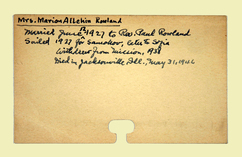 Mrs. Marion Allchin Rowland
Married June 1927 to Rev. Paul Rowland
Sailed 1937 for Samokov, later to Sofia
Withdrew from mission, 1938
Died in Jacksonville, Ill., May 31, 1946